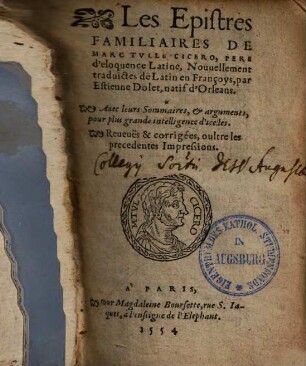 Les Epistres
FAMILIAIRES DE
MARC TVLLE CICERO, PERE
d'eloquence Latine, Nouuellement
traduictes de Latin en Françoys, par
Estienne Dolet, natif d'Orleans.
Auec leurs Sommaires, & arguments,
pour plus grande intelligence d'icelles.
Reueuës & corrigées, oultre les
precedentes Impressions.
Collegij Societ.
M TVL CICERO
EIGENTUM DES KATHOL. STUDIENFONDS
IN
AUGSBURG
A PARIS,
Pour Magdaleine Boursette, rue S. Ia-
ques, a l'enseigne de l'Elephant.
1554